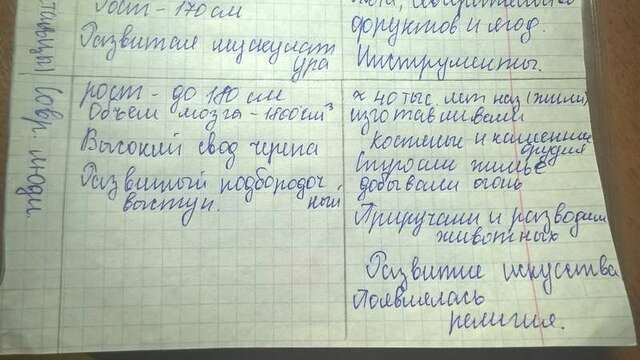 Рост - 170 см
Развитая мускулат
ура
фруктов и ягод.
Инструменты.
Совр. люди.
рост - до 180 см
Объем мозга - 1800 см³
Высокий свод черепа
Развитый подбородоч
ный
выступ.
≈ 40 тыс лет наз (жили)
изготавливали
костеные и каменные
орудия
Строили жильё
добывали огонь
Приручали и разводили
животных
Развитие искусства
Появлялась
религия.